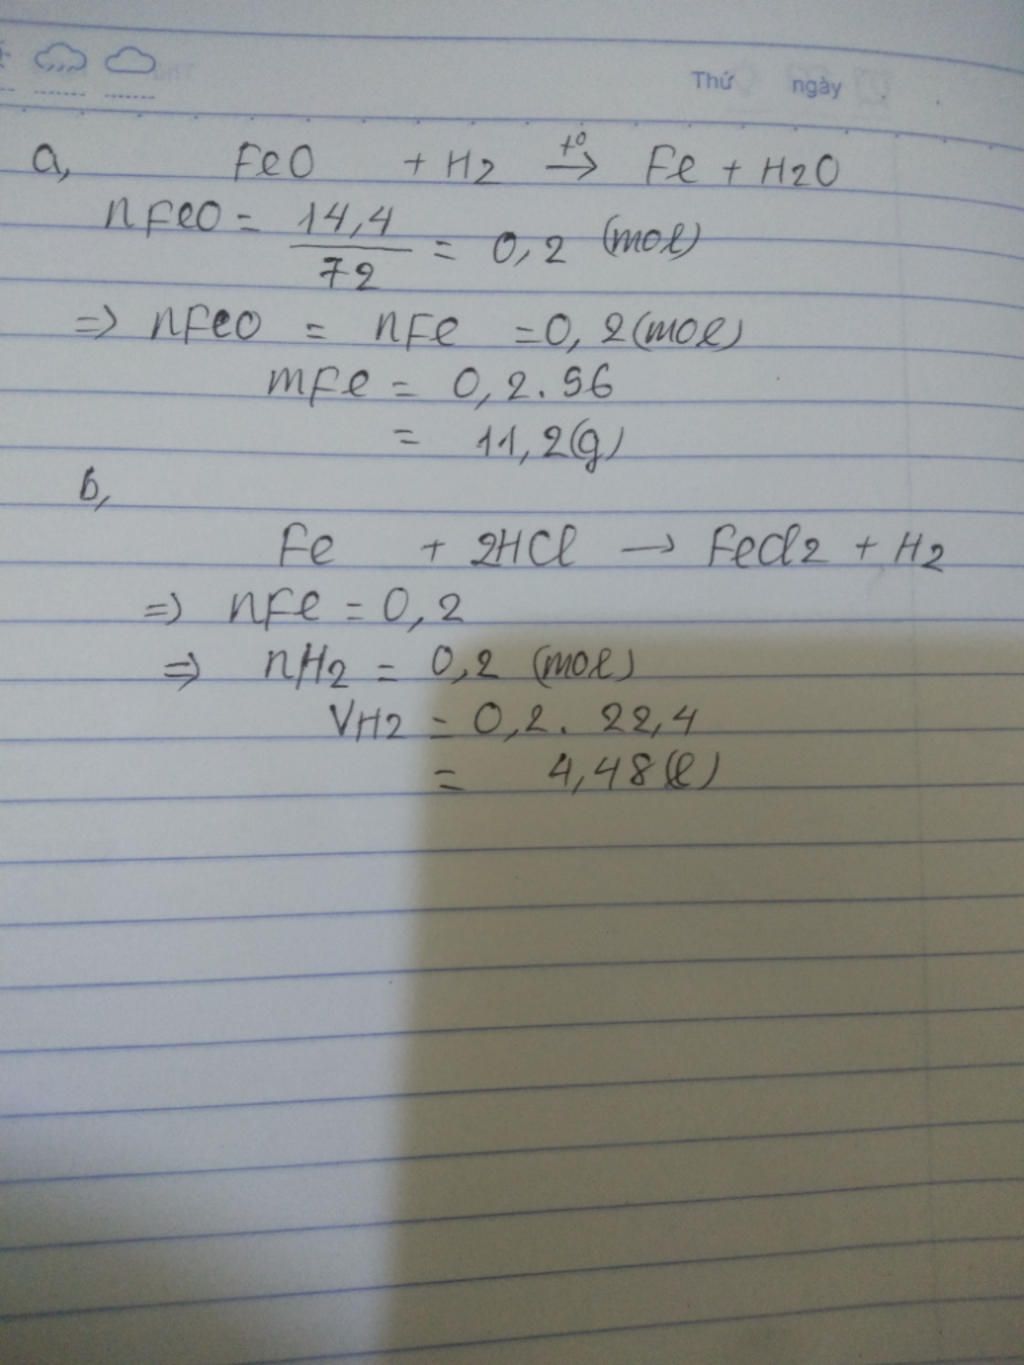 Thứ ngày
a, FeO + H2 t0→ Fe + H2O
nFeO = 14,4/72 = 0,2 (mol)
=> nFeO = nFe = 0,2(mol)
mFe = 0,2.56
= 11,2(g)
b,
Fe + 2HCl → FeCl2 + H2
=> nFe = 0,2
=> nH2 = 0,2 (mol)
VH2 = 0,2. 22,4
= 4,48(l)